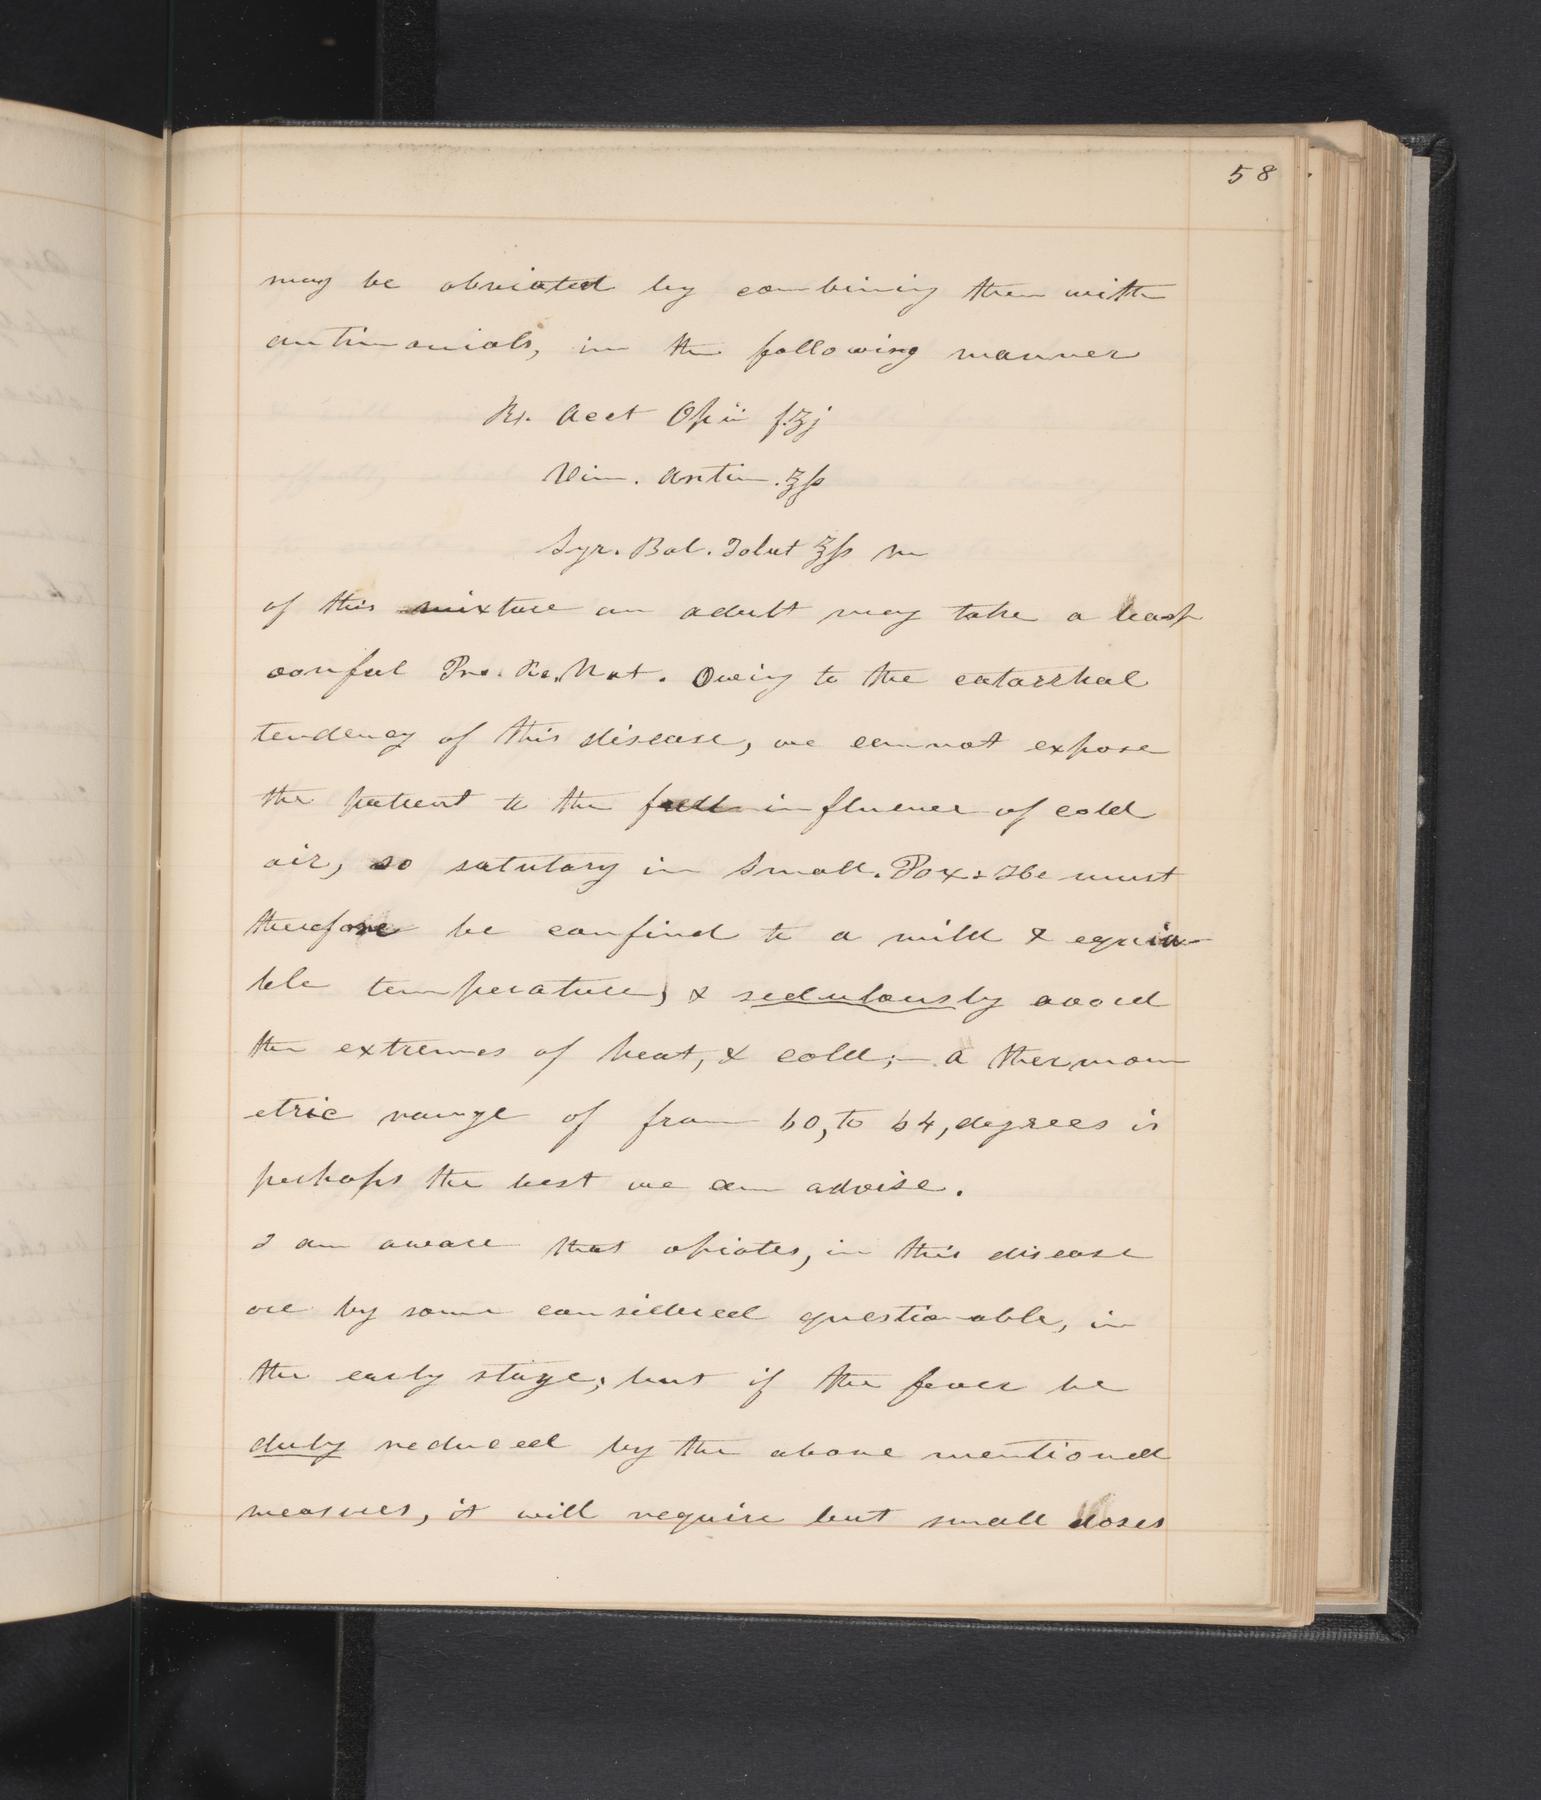 58
may be obviated by combining them with
antimonials, in the following manner
Rx. Acet Opii f.ʒj
Vin. Antim. ʒß
Syr. Bal. Tolut ℥ß m
of this mixture an adult may take a teasp
oonful Pro. Re. Nat. Owing to the catarrhal
tendency of this disease, we cannot expose
the patient to the full influence of cold
air, so salutary in Small. Pox. He must
therefore be confind to a mild & equia-
ble temperature, & sedulously avoid
the extremes of heat, & cold;– a thermom
etric range of from 60, to 64, degrees is
perhaps the best we can advise.
I am aware that opiates, in this disease
are by some considered questionable, in
the early stage; but if the fever be
duly reduced by the above mentioned
measures, it will require but small doses